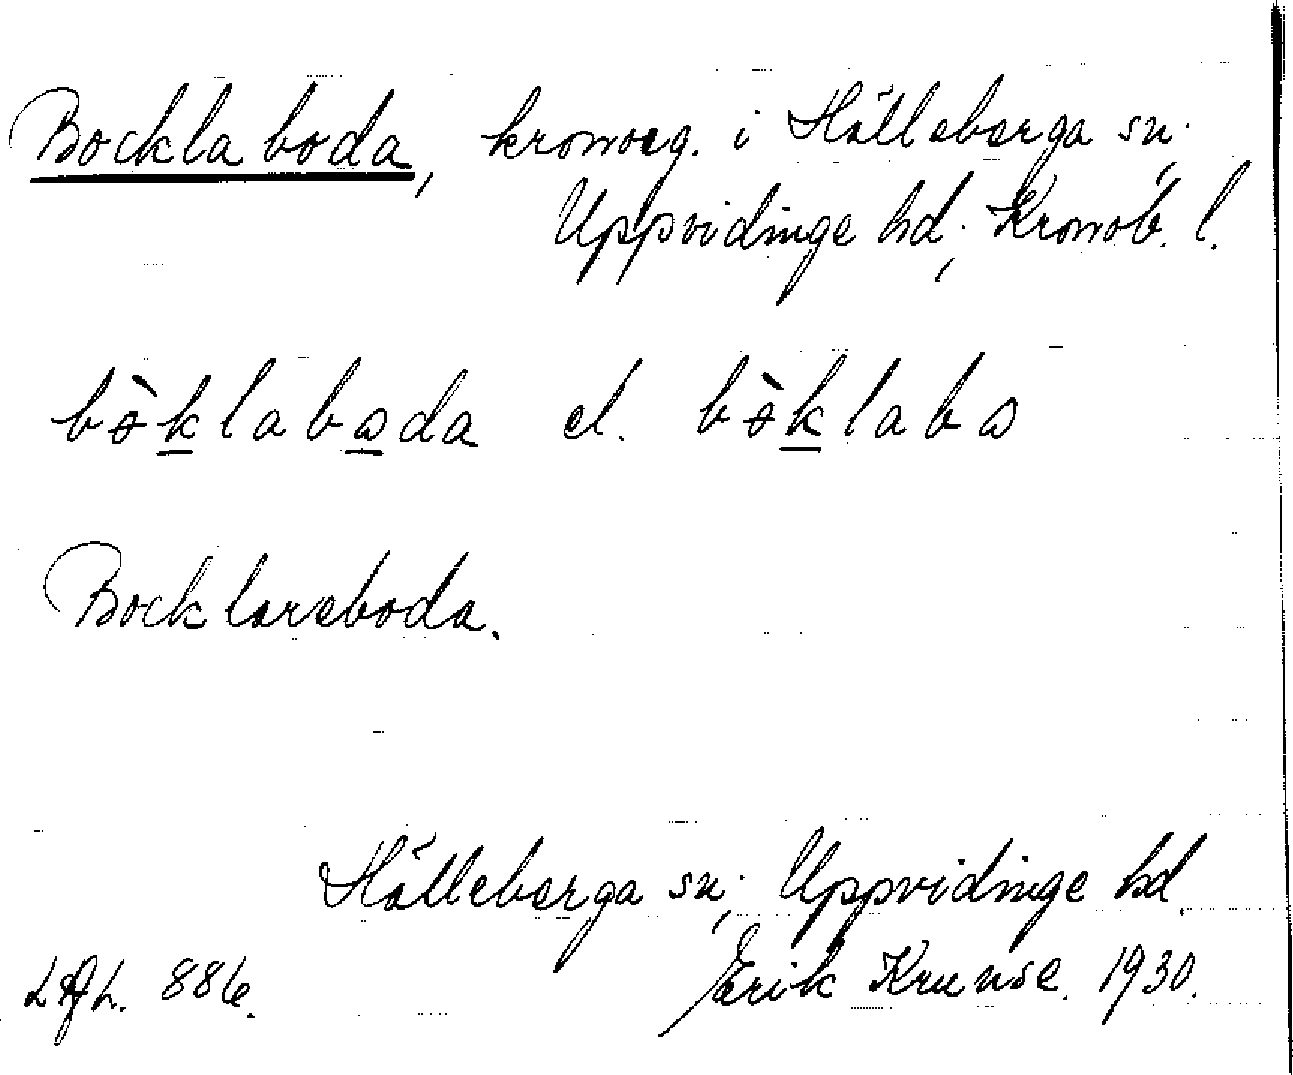 Bocklaboda, kronoeg. i Hälleberga sn.,
Uppvidinge hd., Kronob. l.
bòklaboda el. bòklabo
Bocklareboda.
Hälleberga sn., Uppvidinge hd.
886. Erik Krunse. 1930.